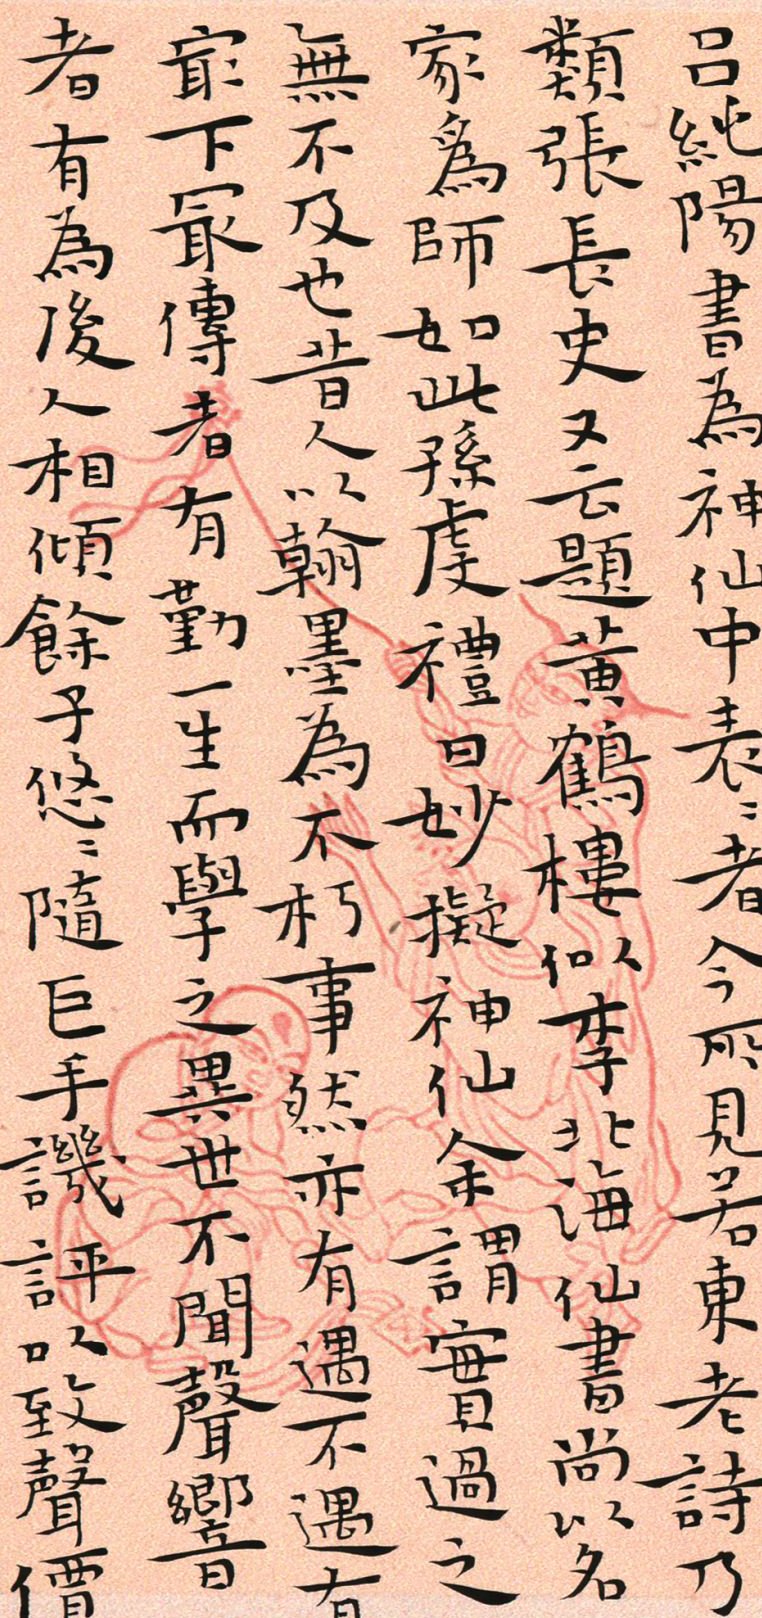 吕純陽書為神仙中表〻者今所見若東老詩乃
類張長史又云題黃鶴樓似李北海仙書尚以名
家爲師如此孫虔禮曰妙擬神仙余謂實過之
無不及也昔人以翰墨為不朽事然亦有遇不遇有
冣下冣傳者有勤一生而學之異世不聞聲響
者有為後人相傾餘子悠〻隨巨手譏評以致聲價